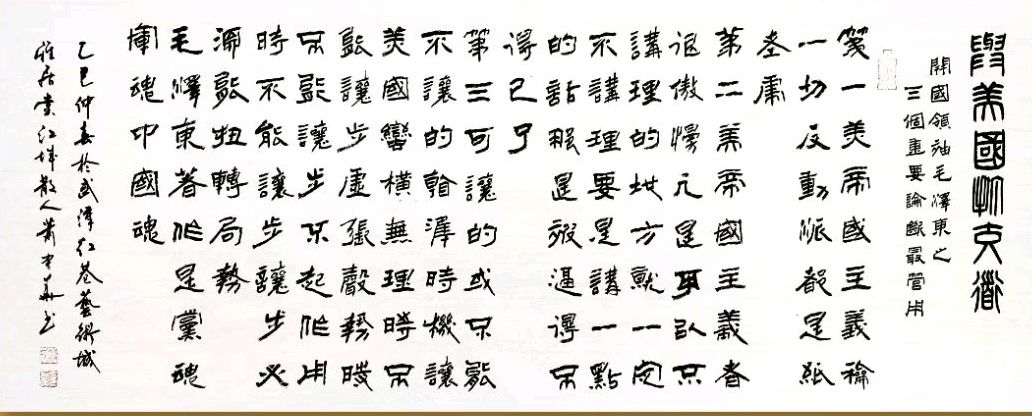 與美國打交道
開國領袖毛澤東之
三個重要論斷最管用
第一美帝國主義和
一切反動派都是紙
老虎
第二美帝國主義者
很傲慢凡是可以不
講理的地方就一定
不講理要是講一點
的話那是被逼得不
得已了
第三可讓的或不能
不讓的看準時機讓
美國蠻橫無理時不
能讓步虛張聲勢時
不能讓步不起作用
時不能讓步讓步必
須能扭轉局勢
毛澤東著作是黨魂
軍魂中國魂
乙巳仲春於武漢紅巷藝術城
紅城散人蕭中華書